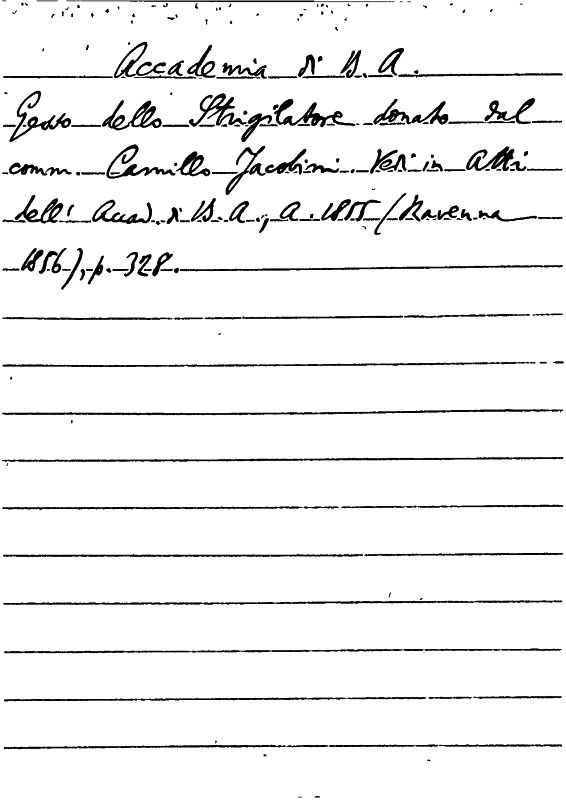 Accademia di B. A.
Gesso dello Strigilatore donato dal
comm. Camillo Jacobini. Vedi in Atti
dell' Accad. di B. A., A. 1855 (Ravenna
1856), p. 328.